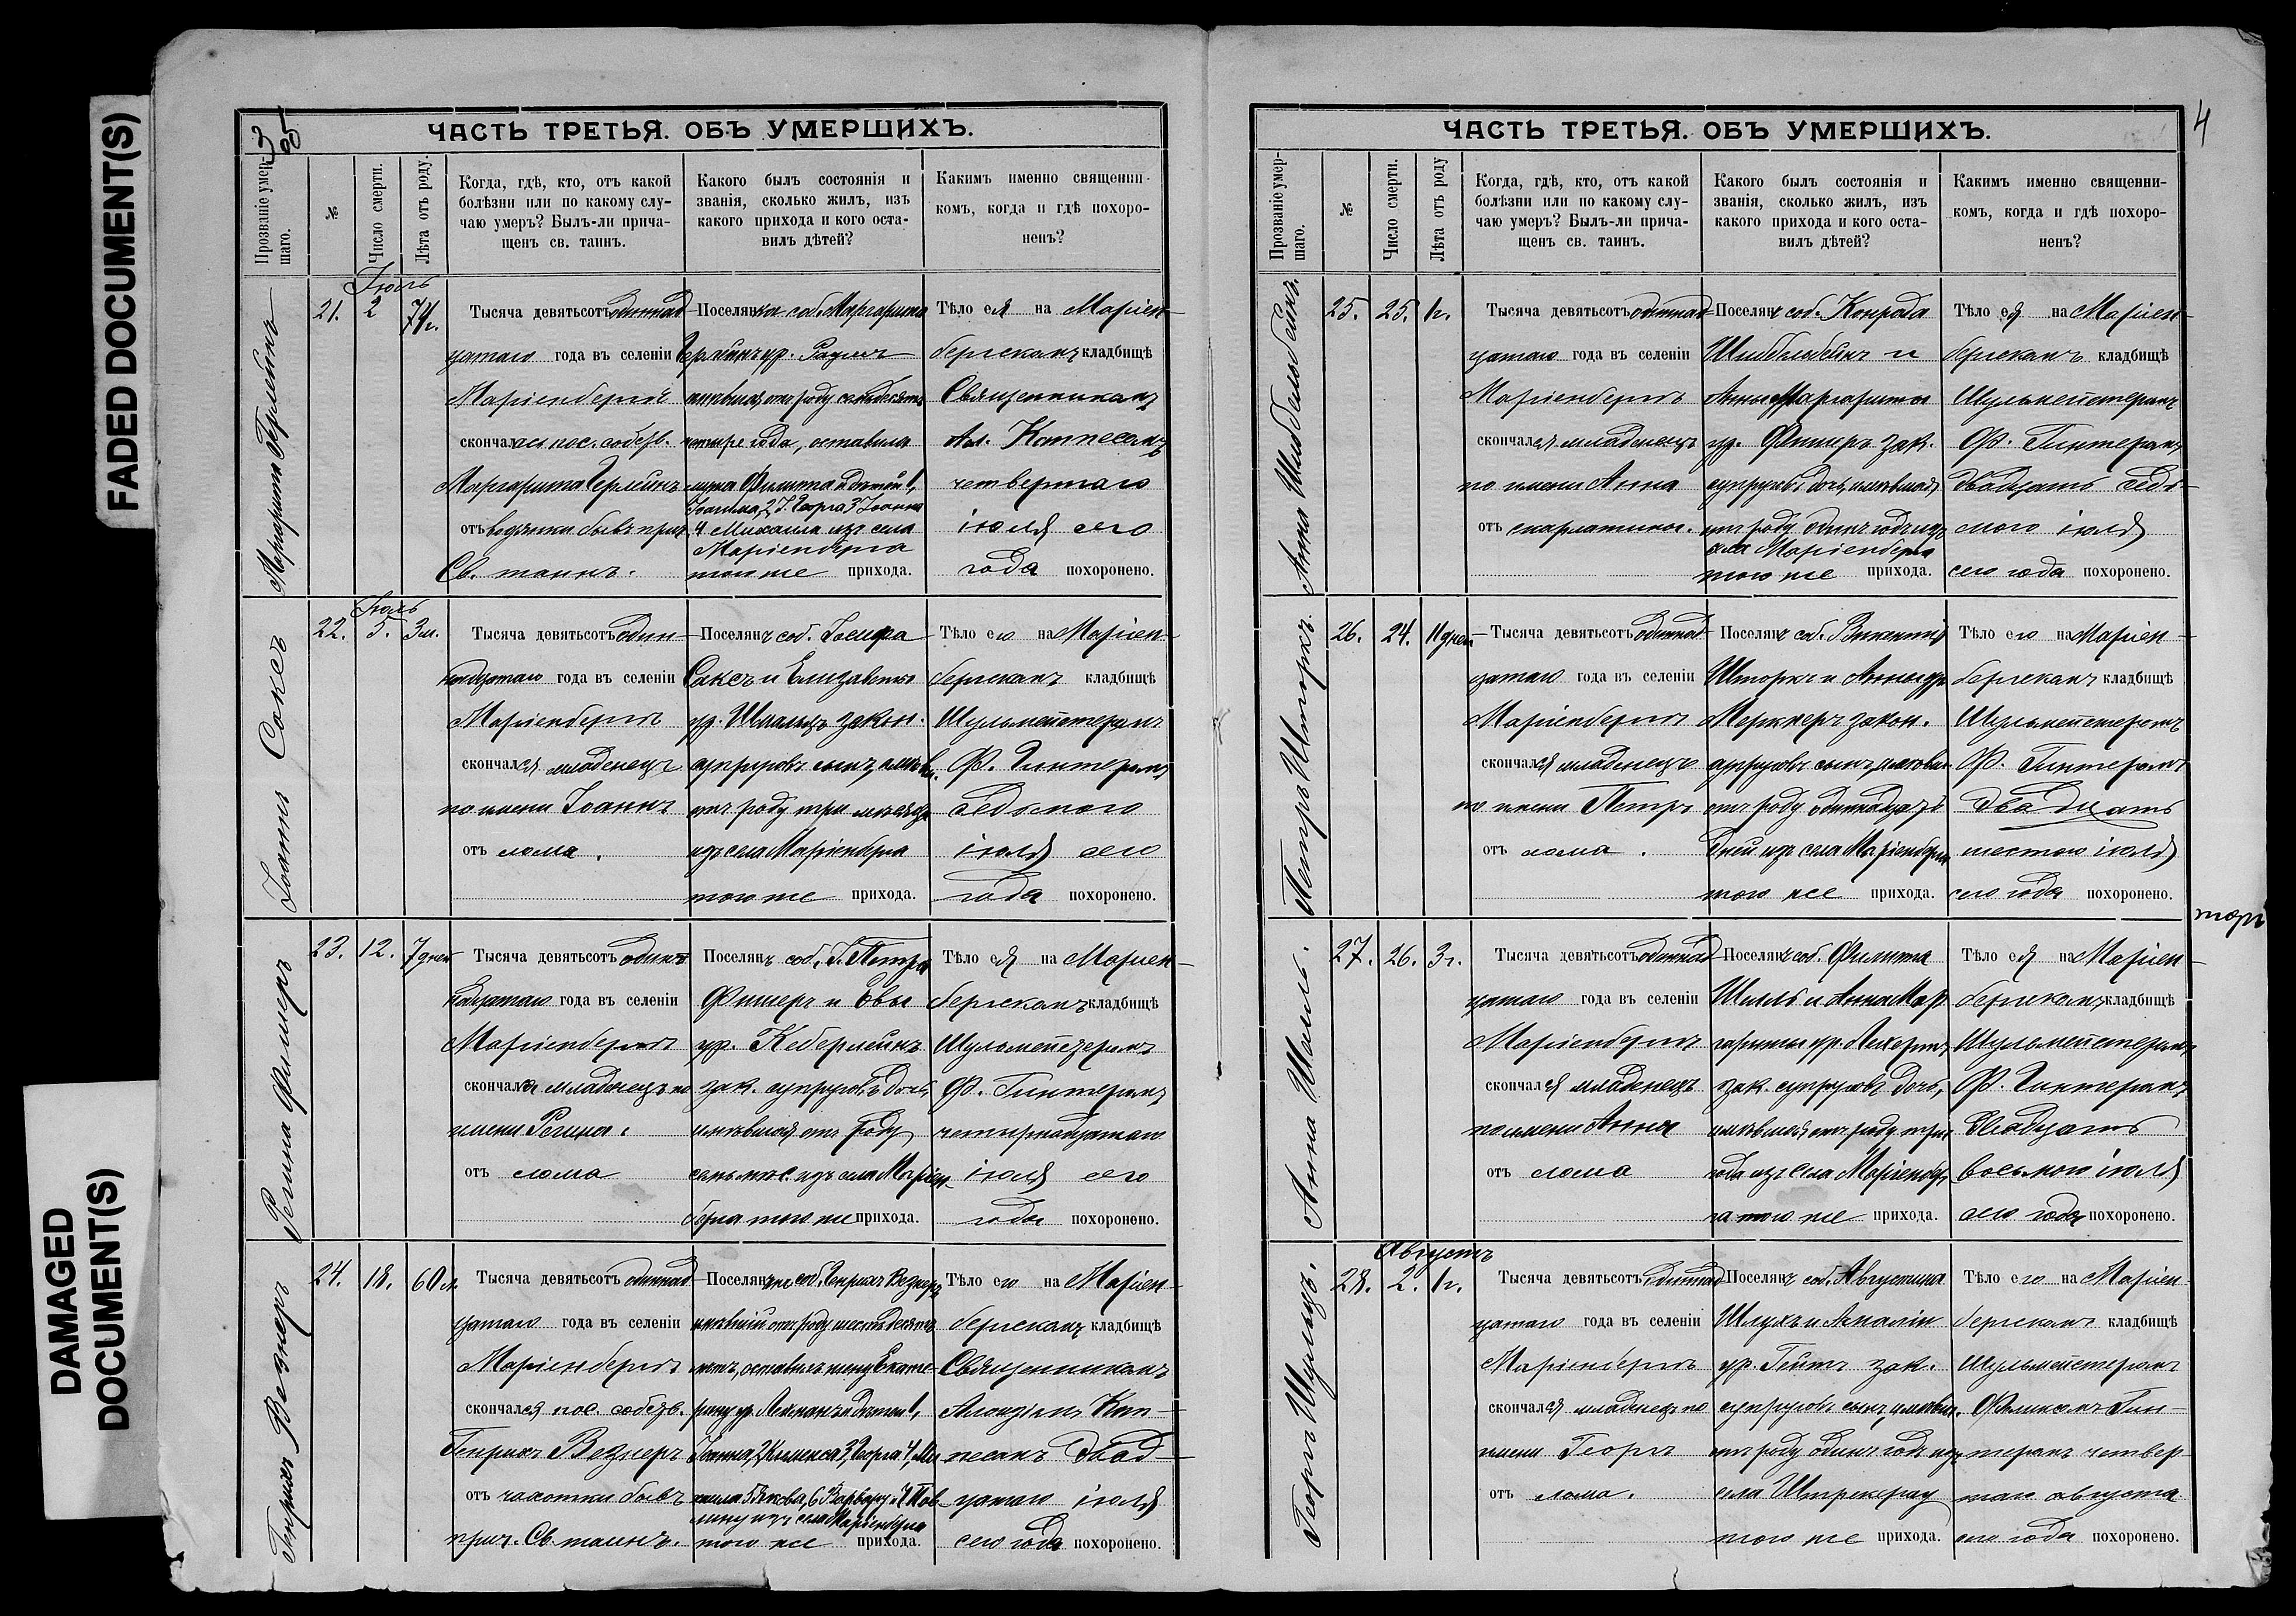 FADED DOCUMENT(S)
DAMAGED
DOCUMENT(S)
3
ЧАСТЬ ТРЕТЬЯ. ОБЪ УМЕРШИХЪ.
Прозваніе умер-
шаго.
№
Число смерти.
Лѣта отъ роду.
Когда, гдѣ, кто, отъ какой
болѣзни или по какому слу-
чаю умеръ? Былъ-ли прича-
щенъ св. таинъ.
Какого былъ состоянія и
званія, сколько жилъ, изъ
какого прихода и кого оста-
вилъ дѣтей?
Какимъ именно священни-
комъ, когда и гдѣ похоро-
ненъ?
Маргарита Герлейнъ
21.
Іюль
2
74г.
Тысяча девятьсотъ одиннад-
цатаго года въ селеніи
Маріенбергъ
скончалась пос. собств.
Маргарита Герлейнъ
отъ водянки бывъ прич.
Св. таинъ.
Поселянка соб. Маргарита
Герлейнъ ур.
имѣвшая отъ роду семьдесятъ
четыре года, оставила
мужа Филиппа и дѣтей 1,
Іоанна
4 Михаила изъ села
Маріенберга
того же прихода.
Тѣло ея на Маріен-
бергскомъ кладбищѣ
Священникомъ
Ал. Коппесомъ
четвертаго
іюля сего
года похоронено.
Іоаннъ Саксъ
22.
Іюль
5.
3м.
Тысяча девятьсотъ один-
надцатаго года въ селеніи
Маріенбергъ
скончался младенецъ
по имени Іоаннъ
отъ лома.
Поселянъ соб. Іосифа
Саксъ и Елизаветы
ур. закон.
супруговъ сынъ, имѣвш.
отъ роду три мѣсяца
изъ села Маріенберга
того же прихода.
Тѣло его на Маріен-
бергскомъ кладбищѣ
Шульмейстеромъ
Ф. Гинтеромъ
седьмого
іюля сего
года похоронено.
Регина Фишеръ
23.
12.
7 дней
Тысяча девятьсотъ один-
надцатаго года въ селеніи
Маріенбергъ
скончался младенецъ по
имени Регина.
отъ лома
Поселянъ соб. І. Петра
Фишеръ и Евы
ур. Кеберлейнъ
зак. супруговъ дочь,
имѣвшая отъ роду
семь изъ села Маріен-
берга того же прихода.
Тѣло ея на Маріен-
бергскомъ кладбищѣ
Шульмейстеромъ
Ф. Гинтеромъ
четырнадцатаго
іюля сего
года похоронено.
Генрихъ Везнеръ
24.
18.
60 л.
Тысяча девятьсотъ одиннад-
цатаго года въ селеніи
Маріенбергъ
скончался пос. собств.
Генрихъ Везнеръ
отъ чахотки бывъ
прич. Св. таинъ.
Поселянинъ соб. Генрихъ Везнеръ
имѣвшій отъ роду шестьдесятъ
лѣтъ, оставилъ жену Екате-
рину ур. Лехманъ и дѣтей 1,
Іоанна, 2, Клеменса 3, Георга 4, Ми-
хаила 5 Якова, 6 Варвару и 7 Пав-
лину изъ села Маріенберга
того же прихода.
Тѣло его на Маріен-
бергскомъ кладбищѣ
Священникомъ
Алоизіемъ Коп-
песомъ двад-
цатаго іюля
сего года похоронено.
4
ЧАСТЬ ТРЕТЬЯ. ОБЪ УМЕРШИХЪ.
Прозваніе умер-
шаго.
№
Число смерти.
Лѣта отъ роду
Когда, гдѣ, кто, отъ какой
болѣзни или по какому слу-
чаю умеръ? Былъ-ли прича-
щенъ св. таинъ.
Какого былъ состоянія и
званія, сколько жилъ, изъ
какого прихода и кого оста-
вилъ дѣтей?
Какимъ именно священни-
комъ, когда и гдѣ похоро-
ненъ?
Анна Шибельбейнъ.
25.
25.
1г.
Тысяча девятьсотъ одиннад-
цатаго года въ селеніи
Маріенбергъ
скончался младенецъ
по имени Анна
отъ скарлатины.
Поселянъ соб. Конрада
Шибельбейнъ и
Анны Маргариты
ур. Фишеръ зак.
супруговъ дочь, имѣвшая
отъ роду одинъ годъ изъ
села Маріенберга
того же прихода.
Тѣло ея на Маріен-
бергскомъ кладбищѣ
Шульмейстеромъ
Ф. Гинтеромъ
двадцать седь-
мого іюля
сего года похоронено.
Петръ Шторкъ.
26.
24.
11 дней
Тысяча девятьсотъ одиннад-
цатаго года въ селеніи
Маріенбергъ
скончался младенецъ
по имени Петръ
отъ лома.
Поселянъ соб. Викентія
Шторкъ и Анны ур.
Меркнеръ закон.
супруговъ сынъ, имѣвш.
отъ роду одиннадцать
дней изъ села Маріенберга
того же прихода.
Тѣло его на Маріен-
бергскомъ кладбищѣ
Шульмейстеромъ
Ф. Гинтеромъ
двадцать
шестого іюля
сего года похоронено.
Анна Шилль.
27.
26.
3г.
Тысяча девятьсотъ одиннад-
цатаго года въ селеніи
Маріенбергъ
скончался младенецъ
по имени Анна
отъ лома
Поселянъ соб. Филиппа
Шилль и Анны Мар-
гариты ур.
зак. супруговъ дочь,
имѣвшая отъ роду три
года изъ села Маріенбер-
га того же прихода.
Тѣло ея на Маріен-
бергскомъ кладбищѣ
Шульмейстеромъ
Ф. Гинтеромъ
двадцать
восьмого іюля
сего года похоронено.
Георгъ
28.
Августъ
2.
1г.
Тысяча девятьсотъ одиннад-
цатаго года въ селеніи
Маріенбергъ
скончался младенецъ по
имени Георгъ
отъ лома.
Поселянъ соб. Августина
и Амаліи
ур. зак.
супруговъ сынъ, имѣвш.
отъ роду одинъ годъ изъ
села Штрекерау
того же прихода.
Тѣло его на Маріен-
бергскомъ кладбищѣ
Шульмейстеромъ
Феликсомъ Гин-
теромъ четвер-
таго августа
сего года похоронено.